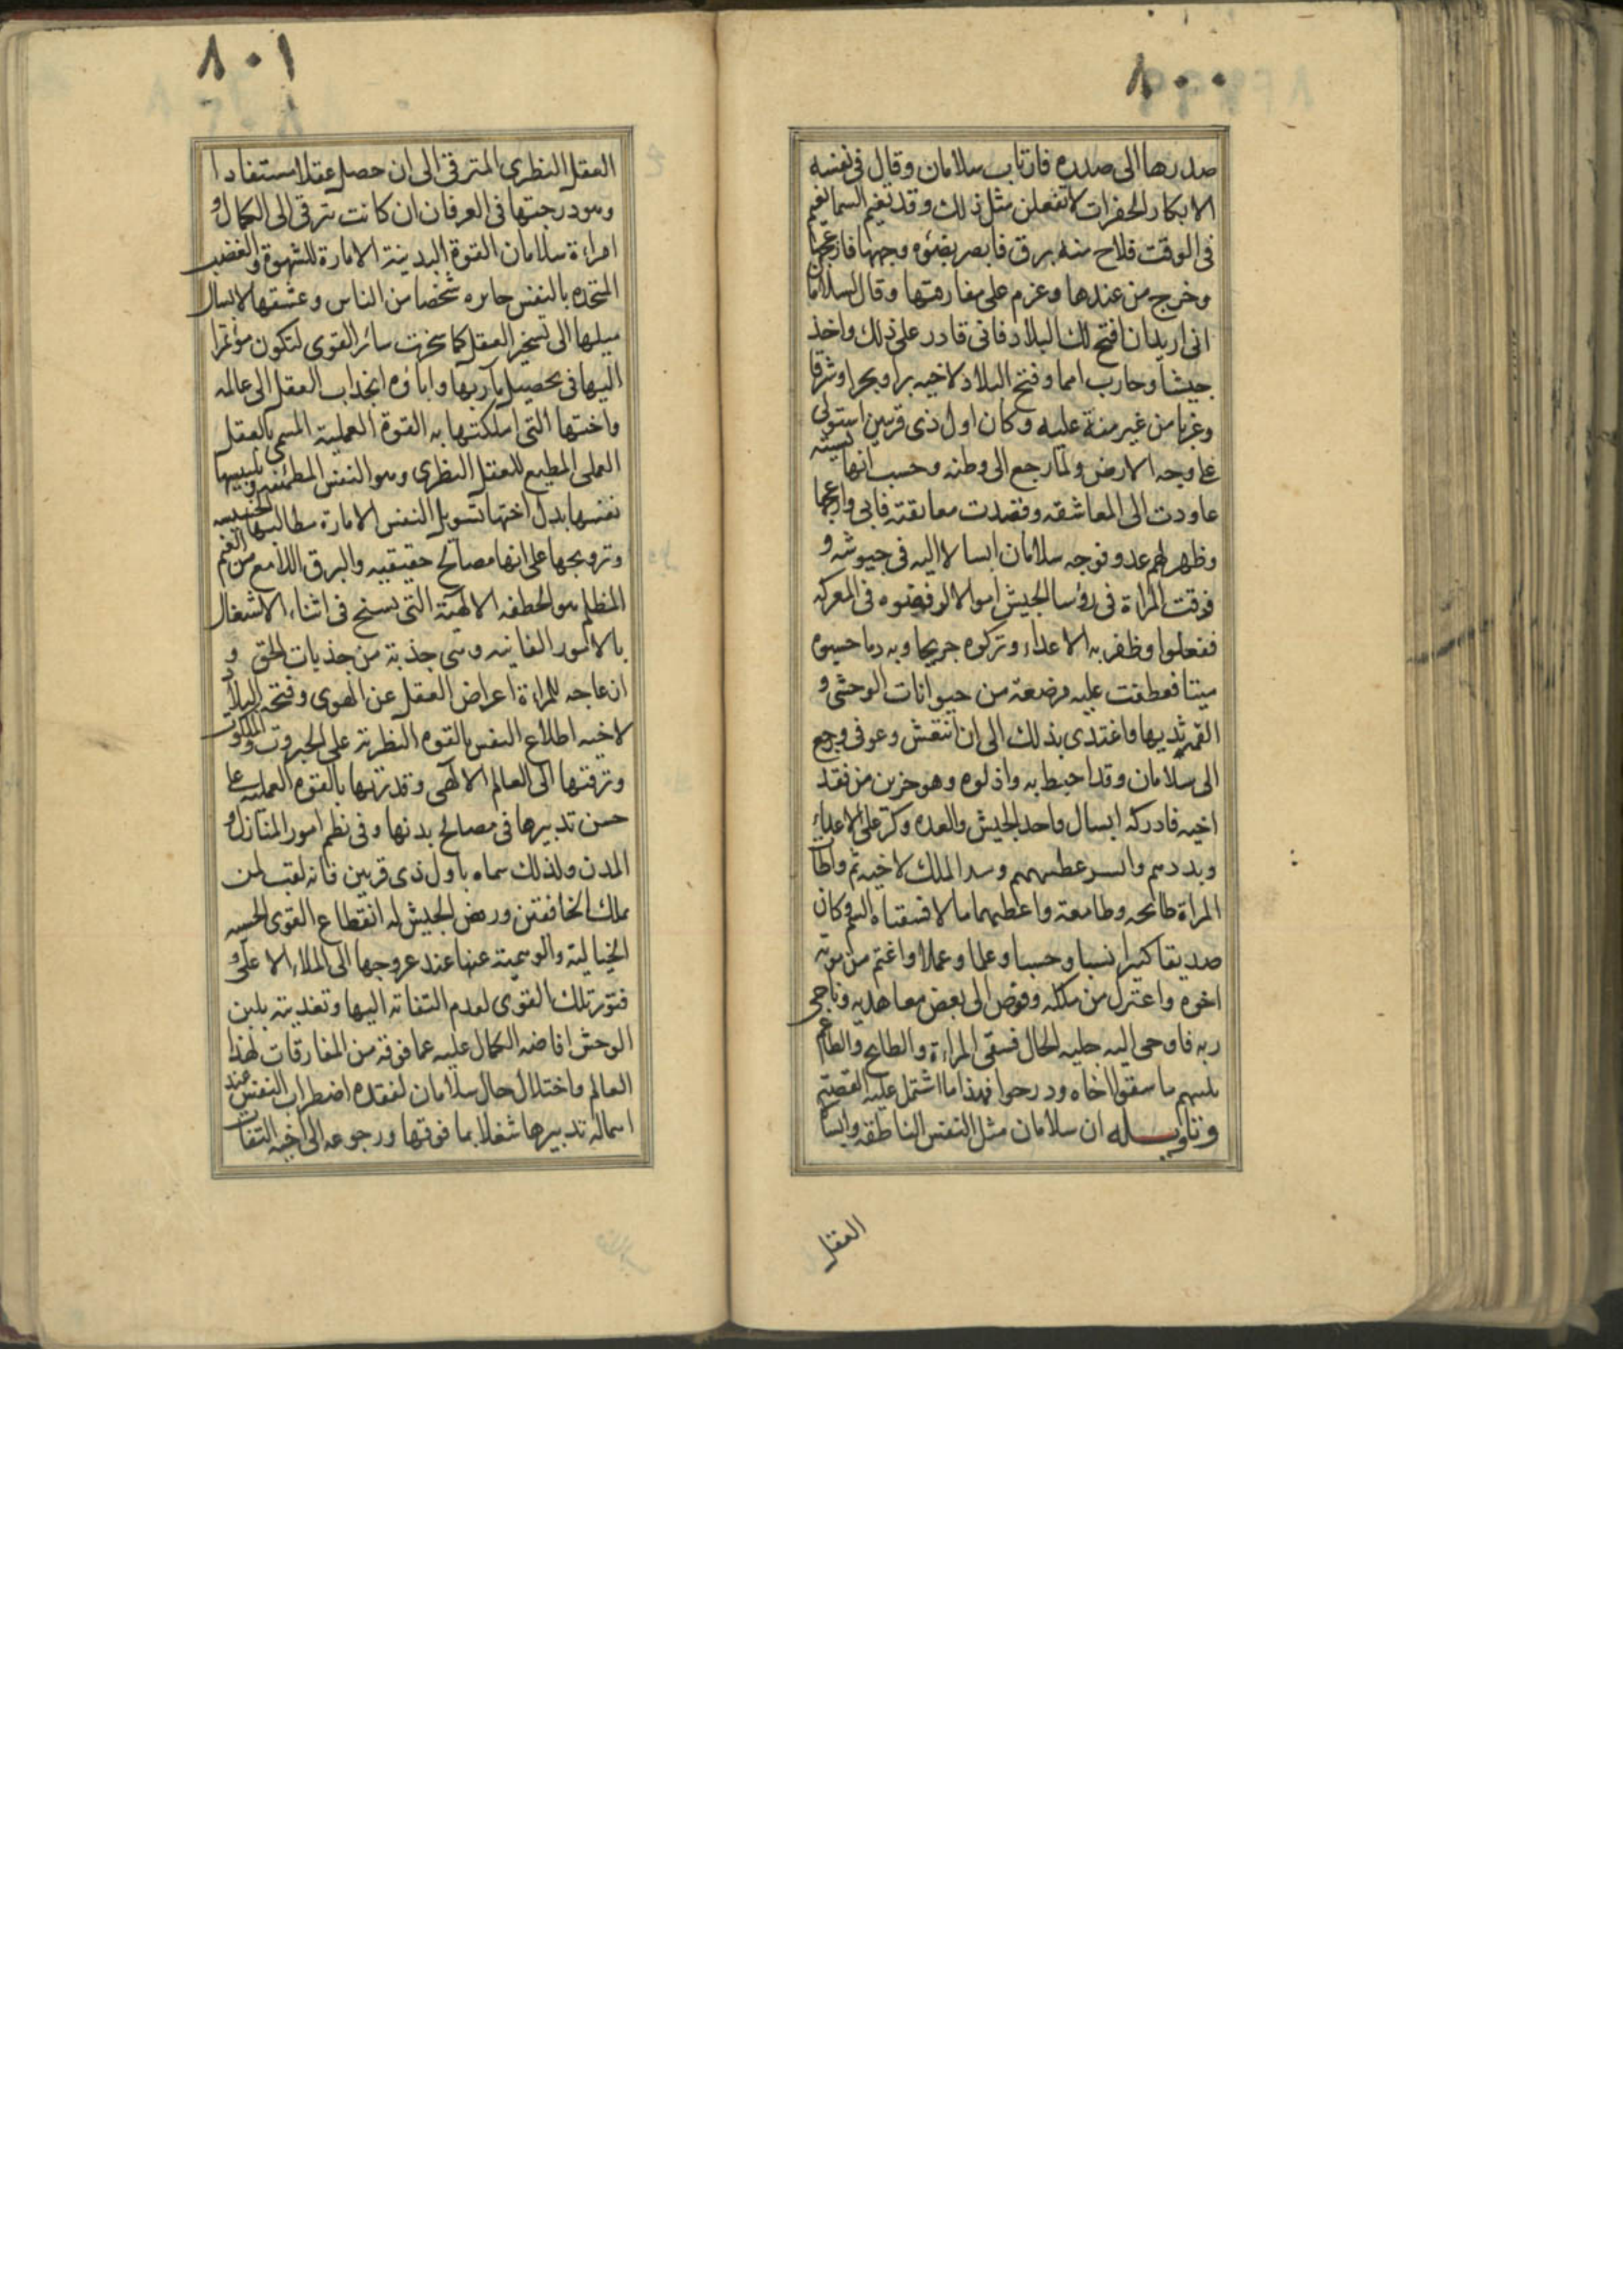 ٨٠٠
صدرها الى صدره فارتاب سلامان وقال فى نفسه
الابكار الخفرات لا تفعلن مثل ذلك وقد تغيم السما الغيم
فى الوقت فلاح منه برق فابصر بضوءه وجهها فازعجها
وخرج من عندها وعزم على مفارقتها وقال لسلامان
انى اريد ان افتح لك البلاد فانى قادر على ذلك واخذ
جيشا وحارب امما وفتح البلاد لاخيه برا وبحرا وشرقا
وغربا من غير منة عليه وكان اول ذى قرنين استولى
على وجه الارض ولما رجع الى وطنه وحسب انها نسيته
عاودت الى المعاشقه وقصدت معانقته فابى وازعجها
وظهر لهم عدو فوجه سلامان ابسالا اليه فى جيوشه و
فرقت المراة فى رؤسا الجيش اموالا لرفضوه فى المعركه
ففعلوا وظفر به الاعداء وتركوه جريحا وبه دما حسبوه
ميتا فعطفت عليه مرضعة من حيوانات الوحشى و
القمته ثديها واغتذى بذلك الى ان انتعش وعوفى ورجع
الى سلامان وقد احيط به واذلوه وهو حزين من فقد
اخيه فادركه ابسال واخذ الجيش والعده وكر على الاعداء
وبددهم واسر عظيمهم وسد الملك لاخيه ثم واطات
المراة طابخه وطاعمه واعطيهما مالا فسقياه السم وكان
صديقا كبيرا نسبا وحسبا وعلما وعملا واغتم من موته
اخوه واعتزل من ملكه وفوض الى بعض معاهديه وناجى
ربه فاوحى اليه جليه الحال فسقى المراءة والطابخ والطاعم
ثلثهم ما سقوا اخاه ودرجوا فهذا ما اشتمل عليه القصة
وتاويله ان سلامان مثل النفس الناطقه وابسال
العقل
٨٠١
العقل النظرى المترقى الى ان حصل عقلا مستفادا
وهو درجتها فى العرفان ان كانت تترقى الى الكمال و
امراءة سلامان القوة البدنية الامارة للشهوة والغضب
المتحده بالنفس صايره شخصا من الناس وعشقها لابسال
ميلها الى تسخير العقل كما سخرت سائر القوى لتكون مؤتمرا
اليها فى تحصيل مآربها واباؤه انجذاب العقل الى عالمه
واختها التى املكتها به القوة العملية المسمى بالعقل
العملى المطيع للعقل النظرى وهو النفس المطمئنه وتلبيسها
نفسها بدل اختها تسويل النفس الامارة مطالبها الخسيسه
وترويجها على انها مصالح حقيقيه والبرق اللامع من الغيم
المظلم هو الخطفه الالهية التى تسنح فى اثناء الاشتغال
بالامور الفانيه وهى جذبة من جذبات الحق و
ازعاجه للمراءة اعراض العقل عن الهوى وفتحه البلاد
لاخيه اطلاع النفس بالقوه النظرية على الجبروت والملكوت
وترقيها الى العالم الالهى وقدرتها بالقوه العمليه على
حسن تدبيرها فى مصالح بدنها وفى نظم امور المنازل و
المدن ولذلك سماه باول ذى قرنين فانه لقب لمن
يملك الخافقين ورفض الجيش له انقطاع القوى الحسيه
الخيالية والوهمية عنها عند عروجها الى الملاء الاعلى و
فتور تلك القوى لعدم التفاته اليها وتغذيته بلبن
الوحش افاضه الكمال عليه عما فوقه من المفارقات لهذا
العالم واختلال حال سلامان لفقده اضطراب النفس عند
اهماله تدبيرها شغلا بما فوقها ورجوعه الى اخيه التفات